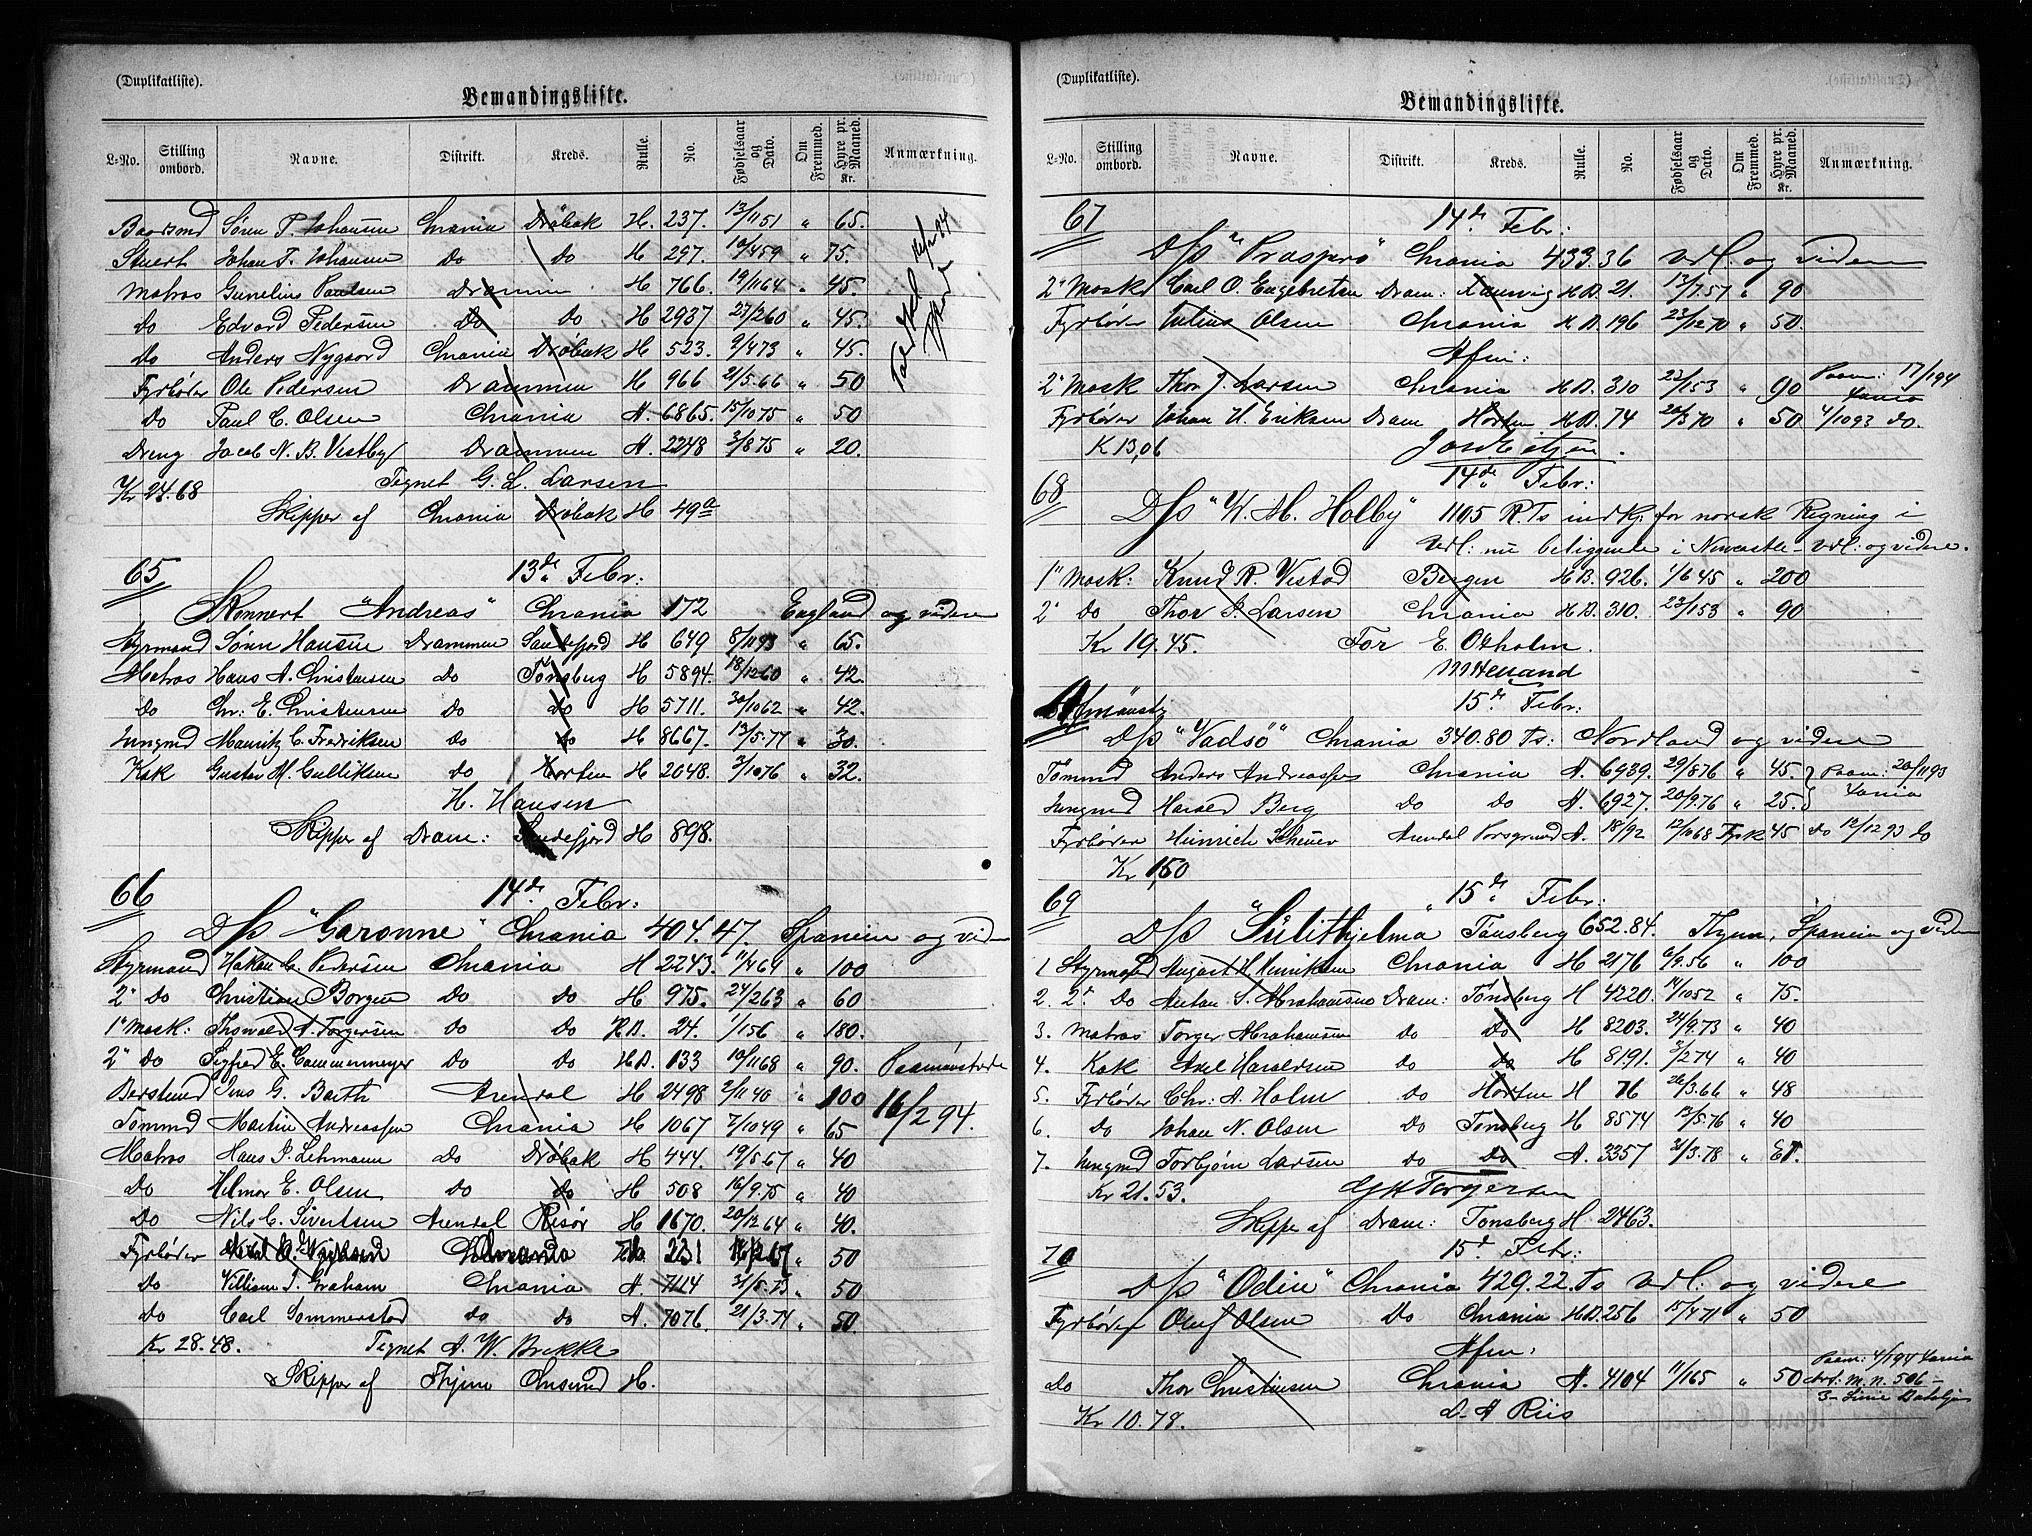 (Duplikatliste).
Bemandingsliste.
L-No. Stilling ombord. Navne. Distrikt. Kreds. Rulle. No. Fødselsaar og Dato. Om Fremmed. Hyre pr. Maaned. Kr. Anmærkning.
Baadsmd Søren P. Johansen Chrania Drøbak H. 237. 13/11 51 " 65.
Stuert Johan T. Johansen Do Do H 297. 10/4 59 " 75.
Matros Gunelius Paulsen Drammen H 766. 19/11 64 " 45.
Do Edvard Pedersen Do Do H 2937 23/2 60 " 45.
Do Anders Nygaard Chrania Drøbak H 523. 9/4 73 " 45.
Fyrbøder Ole Pedersen Drammen H 966 21/5.66 " 50
Do Paul C. Olsen Chrania A. 6865. 15/10 75 " 50
Dreng Jacob N. B. Vestby Drammen A. 2248 3/8 75 " 20.
Kr 24.68 Tegnet G. L. Larsen
Skipper af Chrania Drøbak H 49a
65 13de Febr:
Skonnert "Andreas" Chrania 172 England og videre
Styrmand Søren Hansen Drammen Sandefjord H 649 8/11 93 " 65.
Matros Hans A. Christensen Do Tønsberg H 5894. 18/12 60 " 42.
Do Chr: E. Christensen Do Do H 5711. 30/10 62 " 42.
Jungmd Mauritz C. Fredriksen Do Do H 8667. 13/5.77 " 30.
Kok Gustav M. Gulliksen Do Horten H 2048. 3/10 76 " 32.
H. Hansen
Skipper af Dram: Sandefjord H 898.
66 14de Febr:
D/S "Garonne" Chrania 404.47. Spanien og vid
Styrmand Hakon C. Pedersen Chrania H 2243. 11/4 64 " 100
2" Do Christian Borgen Do Do H 975. 24/2 63 " 60
1" Mask: Thorvald A. Torgersen Do Do H.D. 24. 1/1 56 " 180.
2" Do Sigfred E. Cammermeyer Do Do H.D. 133 10/11 68 " 90. Paamønstrede
Berstmd Jens G. Barth Arendal H 2498 2/11 40 " 100 16/2 94.
Tømmd Martin Andreassen Chrania H 1067 7/10 49 " 65
Matros Hans J. Lehmann Do Drøbak H 444. 19/5.67 " 40
Do Hilmar E. Olsen Do Do H 508 16/9.75 " 40
Do Nils C. Sivertsen Arendal Risør H 1670. 20/12 64 " 40.
Fyrbøder 231 " 50
Do William J. Graham Chrania A. 7114 31/5.73 " 50
Do Carl Sommerstad Do Do A. 7076. 21/3.74 " 50.
Kr 28.48. Tegnet A. W. Brekke
Skipper af H.
(Duplikatliste).
Bemandingsliste.
L-No. Stilling ombord. Navne. Distrikt. Kreds. Rulle. No. Fødselsaar og Dato. Om Fremmed. Hyre pr. Maaned. Kr. Anmærkning.
67 14de Febr:
D/S "Prospero" Chrania 433.36 Udl. og videre
2" Mask Carl O. Engebretsen Dram: Laurvig H.D. 21. 13/7.57 " 90
Fyrbøder Julius Olsen Chrania H.D. 196 23/12 70 " 50.
Afm:
2" Mask Thor J. Larsen Chrania H.D. 310 23/1 53 " 90 Paam: 17/1 94
Fyrbøder Johan H. Eriksen Dram Horten H.D. 74 20/3 70 " 50 4/10 93 do.
K 13,06
68 14de Febr:
D/S "W. M. Holby" 1105 R.Ts indkj. for norsk Regning i
Udl: nu beliggende i Newcastle - Udl: og videre.
1" Mask: Knud R. Vestad Bergen H.D. 926. 1/6 45 " 200
2" Do Thor J. Larsen Chrania H.D. 310. 23/1 53 " 90
Kr 19.45. For E. Otholm.
15de Febr:
D/S "Vadsø" Chrania 340.80 Ts: Nordland og videre
Tømmd Anders Andreassen Chrania A. 6939. 29/8 76 " 45. Paam: 20/11 93
Jungmd Harald Berg Do Do A. 6927. 20/9.76 " 25.
Fyrbøder Heinrich Scheuer Arendal Porsgrund A. 18/92 12/10 68 Tysk 45 Do 12/12 93 Do
Kr 1,50
69 15de Febr:
D/S "Sulithjelma" Tønsberg 652.84. Thynn, Spanien og videre
1 Styrmand August H. Henriksen Chrania H 2176 6/9.56 " 100
2. 2" Do Anton S. Abrahamsen Dram: Tønsberg H 4220. 14/10 52 " 75.
3. Matros Torger Abrahamsen Do Do H 8203. 24/9.73 " 40
4. Kok Axel Haraldsen Do Do H 8191. 3/2 74 " 40
5. Fyrbøder Chr: A. Holm Do Horten H 76 26/3.66 " 48
6. Do Johan N. Olsen Do Tønsberg H 8574 13/5.76 " 40
7. Jungmd Torbjørn Larsen Do Do A. 3357 31/3.78 "
Kr 21.53. G H Torgersen
Skipper af Dram: Tønsberg H 2463.
70 15de Febr:
D/S "Odin" Chrania 429.22. Ts Udl: og videre
Fyrbøder Oluf Olsen Do Chrania H.D. 256 15/4 71 " 50
Afm:
Do Thor Christensen Chrania A. 4104 11/1 65 " 50 Paam: 4/1 94
Kr 10.78. D. A Riis